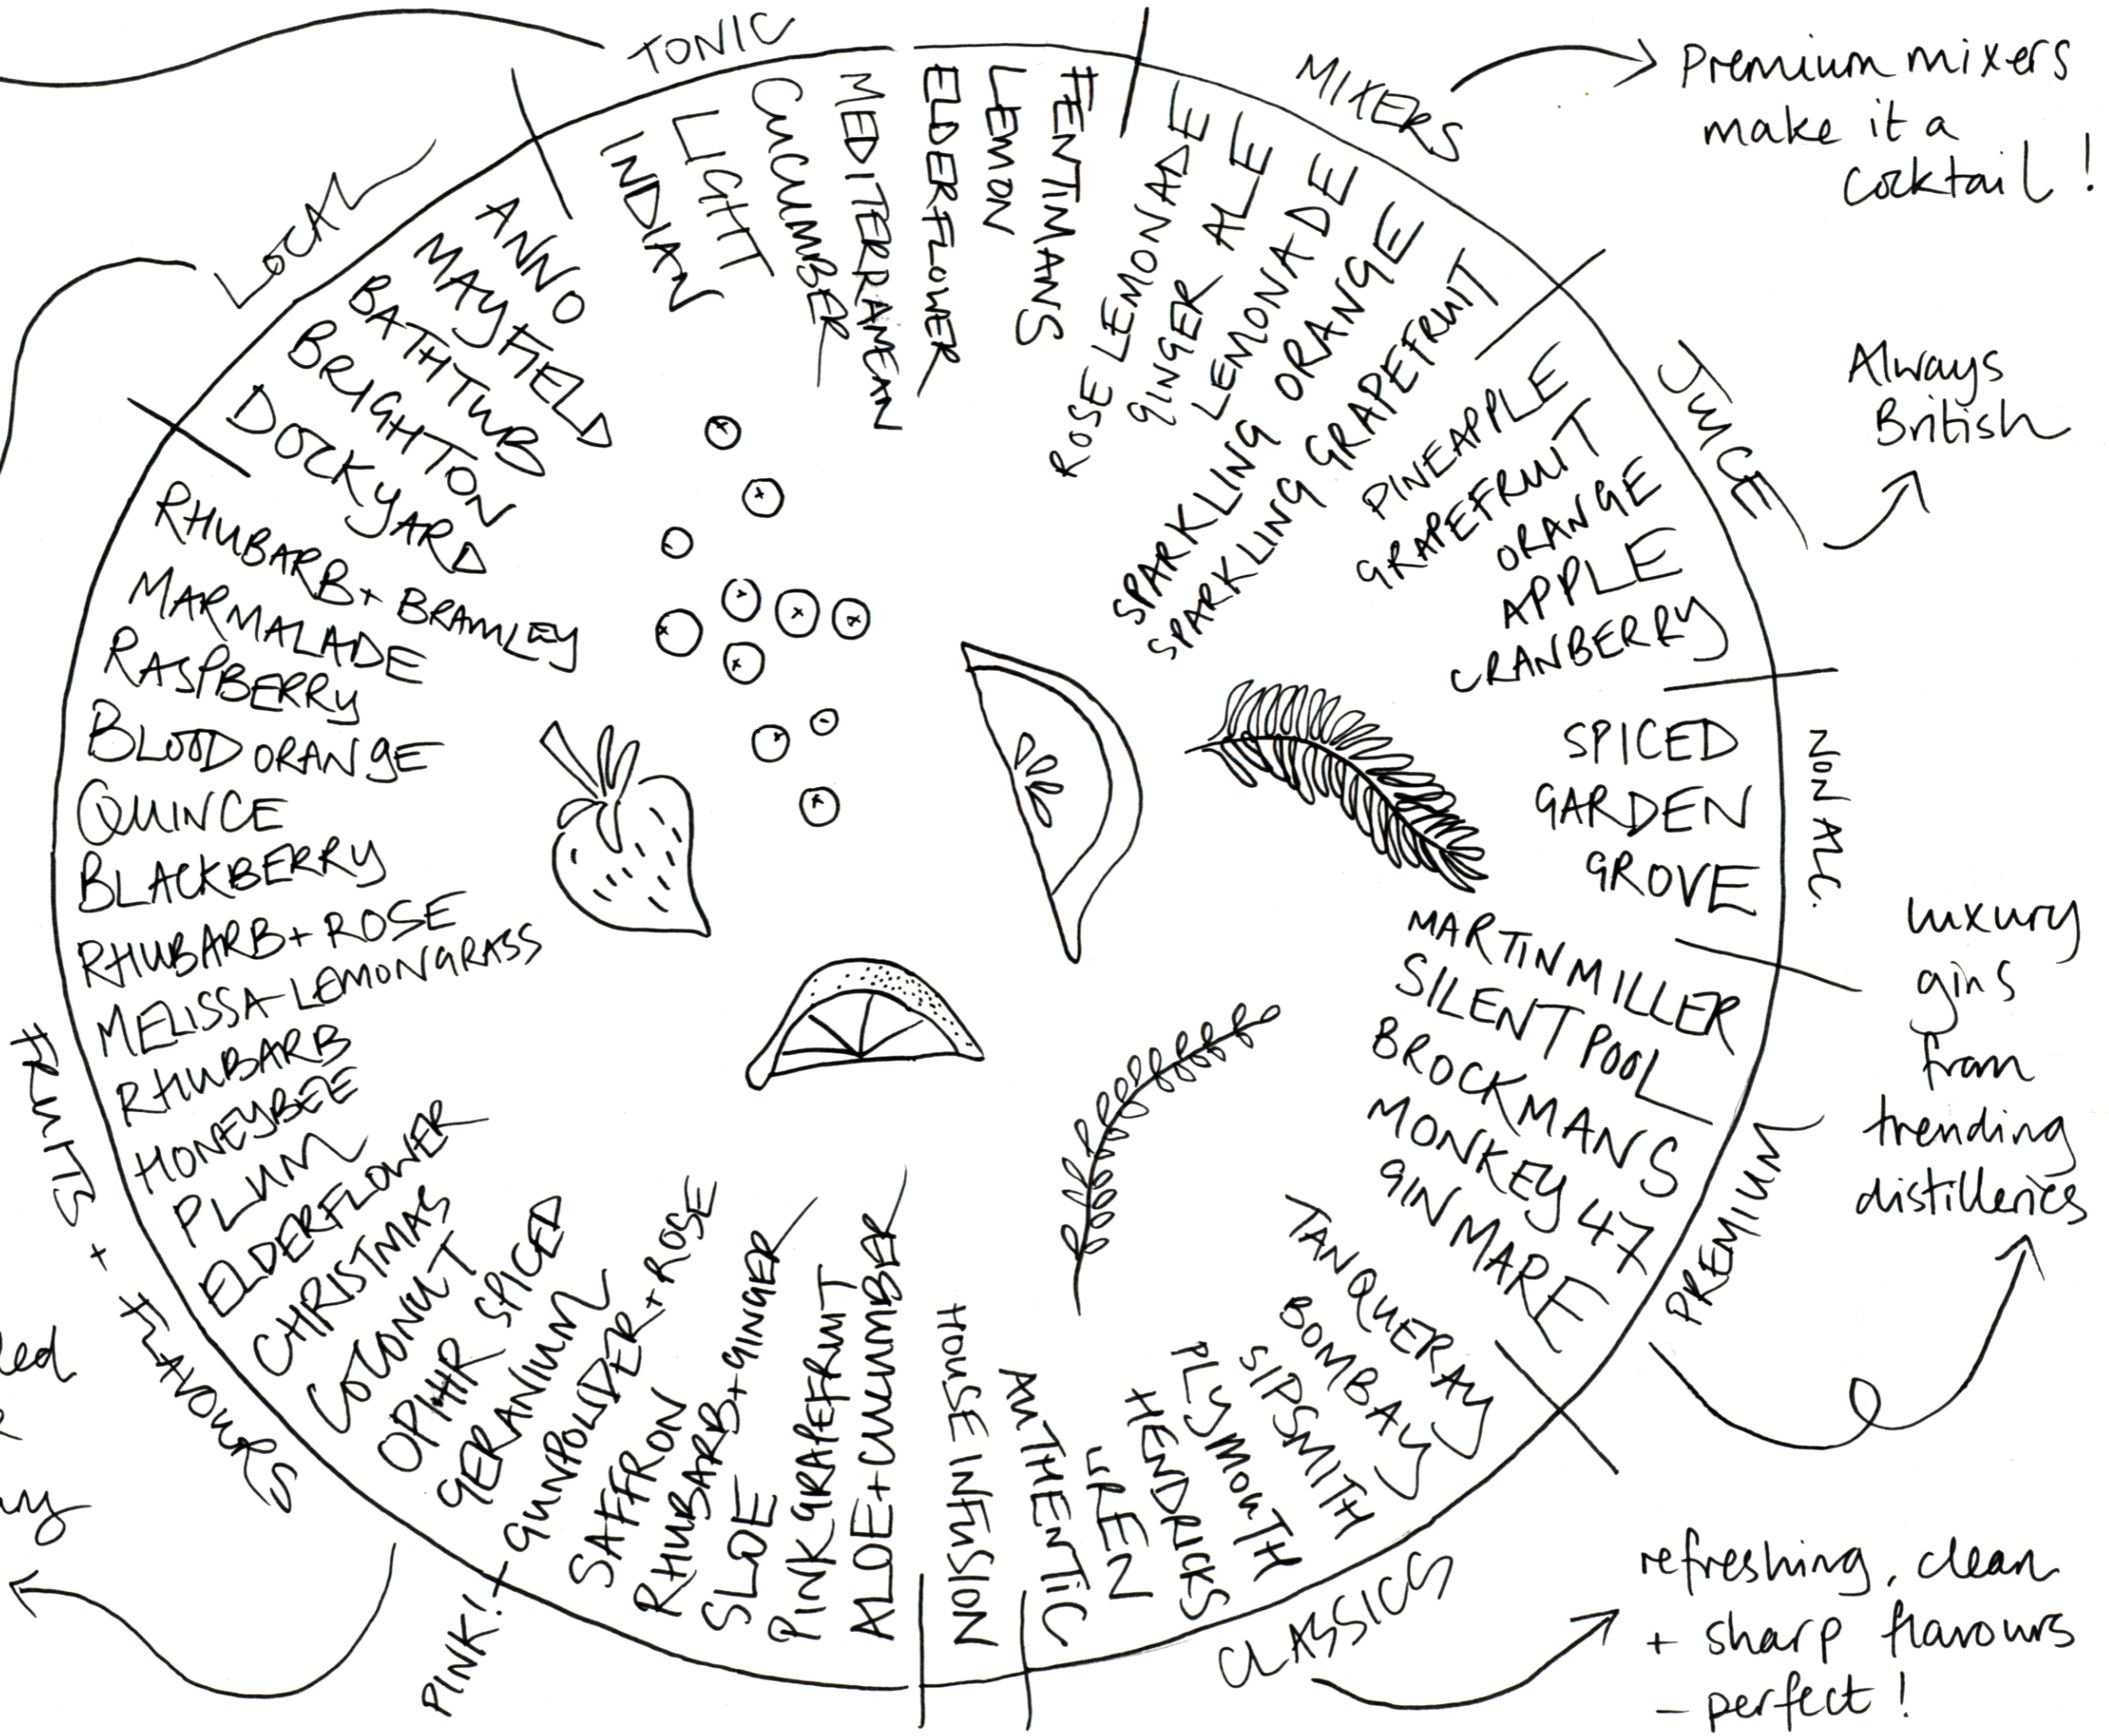 TONIC
INDIAN
LIGHT
CUCUMBER
MEDITERRANEAN
ELDERFLOWER
LEMON
FENTIMANS
MIXERS
ROSE LEMONADE
GINGER ALE
LEMONADE
SPARKLING ORANGE
SPARKLING GRAPEFRUIT
Premium mixers
make it a
cocktail!
JUICE
PINEAPPLE
GRAPEFRUIT
ORANGE
APPLE
CRANBERRY
Always
British
NON ALC.
SPICED
GARDEN
GROVE
PREMIUM
MARTIN MILLER
SILENT POOL
BROCKMANS
MONKEY 47
GIN MARE
luxury
gins
from
trending
distilleries
CLASSICS
TANQUERAY
BOMBAY
SIPSMITH
PLYMOUTH
HENDRICKS
AUTHENTIC
refreshing, clean
+ sharp flavours
- perfect!
HOUSE INFUSION
ALOE + CUCUMBER
PINK GRAPEFRUIT
SLOE
RHUBARB + GINGER
SAFFRON
GUNPOWDER + ROSE
PINK!
GERANIUM
OPHIR SPICED
COCONUT
CHRISTMAS
ELDERFLOWER
PLUM
HONEYBEE
RHUBARB
MELISSA-LEMONGRASS
RHUBARB + ROSE
BLACKBERRY
QUINCE
BLOOD ORANGE
RASPBERRY
MARMALADE
RHUBARB + BRAMLEY
FRUITS + FLAVOURS
LOCAL
DOCKYARD
BRIGHTON
BATHTUB
MAYFIELD
ANNO